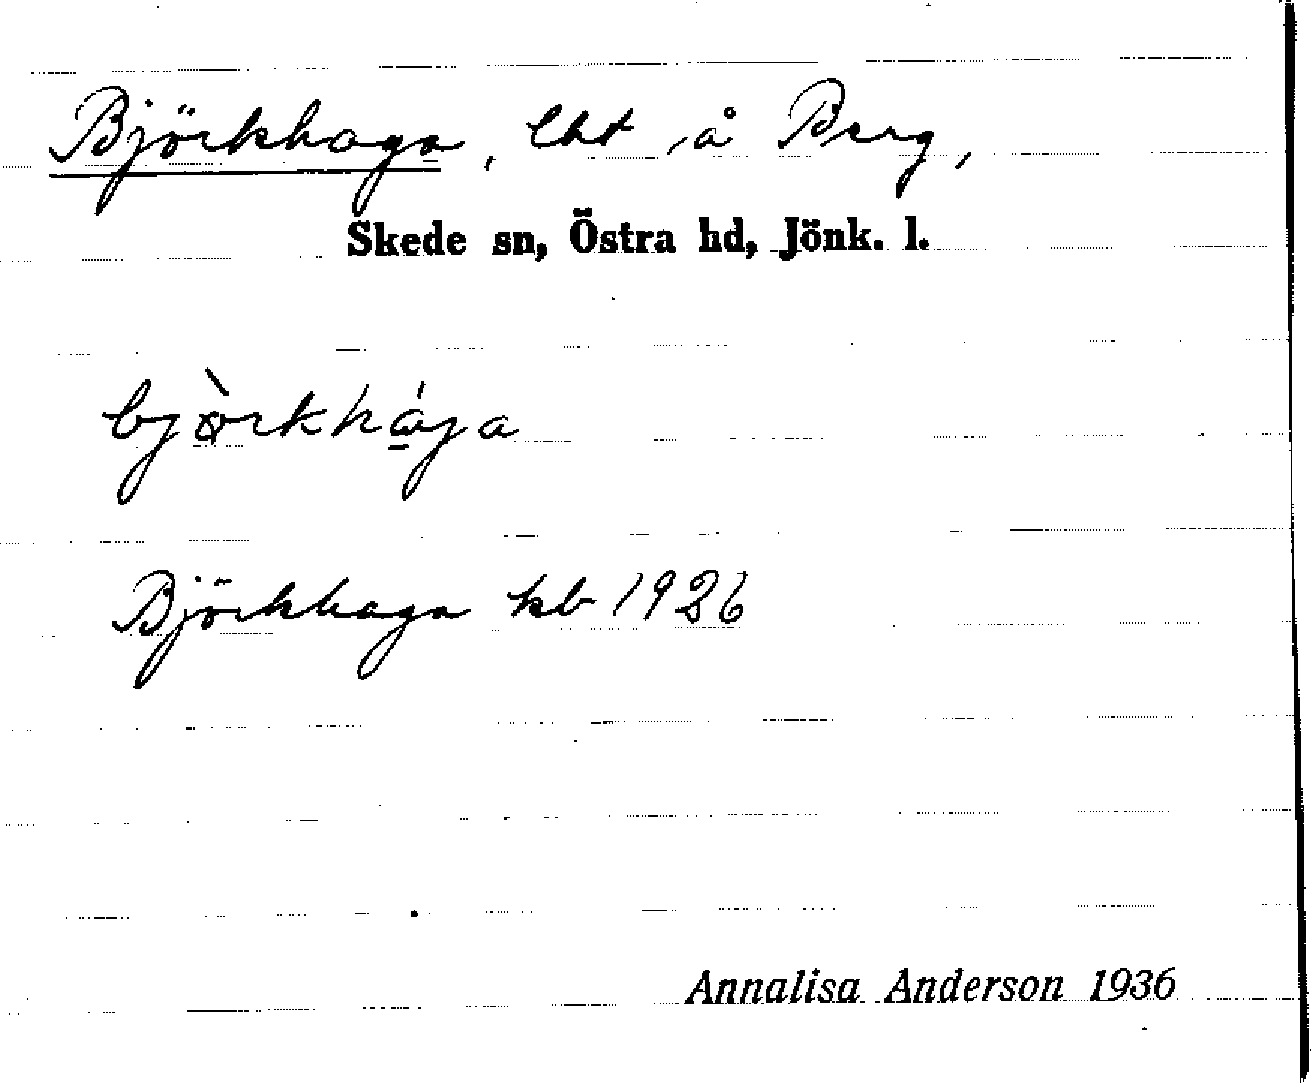 Björkhaga, lht å Berg,
Skede sn, Östra hd, Jönk. l.
bjòrkhága
Björkhaga kb 1926
Annalisa Anderson 1936